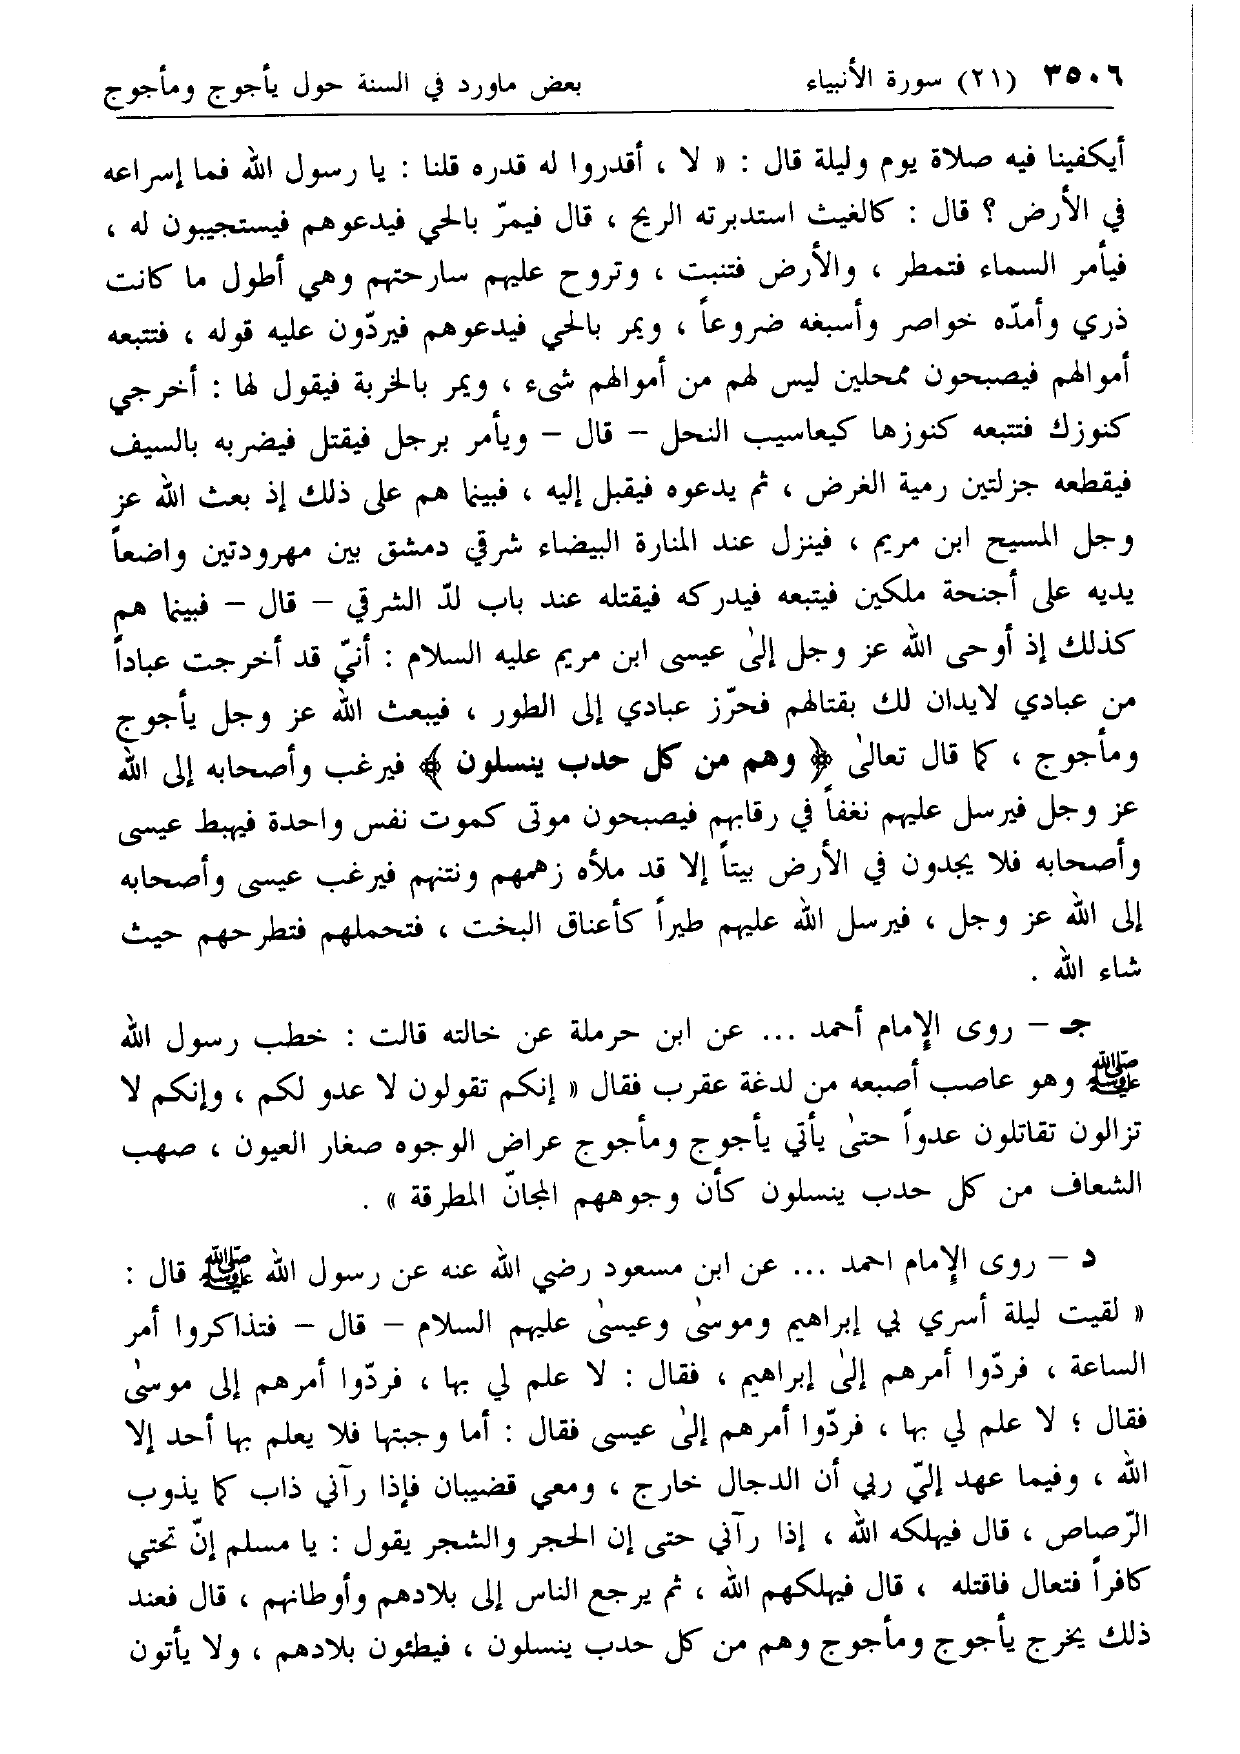 ٣٥٠٦ (٢١) سورة الأنبياء بعض ماورد في السنة حول يأجوج ومأجوج
أيكفينا فيه صلاة يوم وليلة قال : « لا ، أقدروا له قدره قلنا : يا رسول الله فما إسراعه
في الأرض ؟ قال : كالغيث استدبرته الريح ، قال فيمرّ بالحي فيدعوهم فيستجيبون له ،
فيأمر السماء فتمطر ، والأرض فتنبت ، وتروح عليهم سارحتهم وهي أطول ما كانت
ذري وأمدّه خواصر وأسبغه ضروعاً ، ويمر بالحي فيدعوهم فيردّون عليه قوله ، فتتبعه
أموالهم فيصبحون ممحلين ليس لهم من أموالهم شىء ، ويمر بالخربة فيقول لها : أخرجي
كنوزك فتتبعه كنوزها كيعاسيب النحل – قال – ويأمر برجل فيقتل فيضربه بالسيف
فيقطعه جزلتين رمية الغرض ، ثم يدعوه فيقبل إليه ، فبينما هم على ذلك إذ بعث الله عز
وجل المسيح ابن مريم ، فينزل عند المنارة البيضاء شرقي دمشق بين مهرودتين واضعاً
يديه على أجنحة ملكين فيتبعه فيدركه فيقتله عند باب لدّ الشرقي – قال – فبينما هم
كذلك إذ أوحى الله عز وجل إلىٰ عيسى ابن مريم عليه السلام : أنيّ قد أخرجت عباداً
من عبادي لايدان لك بقتالهم فحرّز عبادي إلى الطور ، فيبعث الله عز وجل يأجوج
ومأجوج ، كما قال تعالىٰ ﴿ وهم من كل حدب ينسلون ﴾ فيرغب وأصحابه إلى الله
عز وجل فيرسل عليهم نغفاً في رقابهم فيصبحون موتى كموت نفس واحدة فيهبط عيسى
وأصحابه فلا يجدون في الأرض بيتاً إلا قد ملأه زهمهم ونتنهم فيرغب عيسى وأصحابه
إلى الله عز وجل ، فيرسل الله عليهم طيراً كأعناق البخت ، فتحملهم فتطرحهم حيث
شاء الله .
جـ – روى الإمام أحمد ... عن ابن حرملة عن خالته قالت : خطب رسول الله
ﷺ وهو عاصب أصبعه من لدغة عقرب فقال « إنكم تقولون لا عدو لكم ، وإنكم لا
تزالون تقاتلون عدواً حتىٰ يأتي يأجوج ومأجوج عراض الوجوه صغار العيون ، صهب
الشعاف من كل حدب ينسلون كأن وجوههم المجانّ المطرقة » .
د – روى الإمام احمد ... عن ابن مسعود رضي الله عنه عن رسول الله ﷺ قال :
« لقيت ليلة أسري بي إبراهيم وموسىٰ وعيسىٰ عليهم السلام – قال – فتذاكروا أمر
الساعة ، فردّوا أمرهم إلىٰ إبراهيم ، فقال : لا علم لي بها ، فردّوا أمرهم إلى موسىٰ
فقال ؛ لا علم لي بها ، فردّوا أمرهم إلىٰ عيسى فقال : أما وجبتها فلا يعلم بها أحد إلا
الله ، وفيما عهد إليّ ربي أن الدجال خارج ، ومعي قضيبان فإذا رآني ذاب كما يذوب
الرّصاص ، قال فيهلكه الله ، إذا رآني حتى إن الحجر والشجر يقول : يا مسلم إنّ تحتي
كافراً فتعال فاقتله ، قال فيهلكهم الله ، ثم يرجع الناس إلى بلادهم وأوطانهم ، قال فعند
ذلك يخرج يأجوج ومأجوج وهم من كل حدب ينسلون ، فيطئون بلادهم ، ولا يأتون